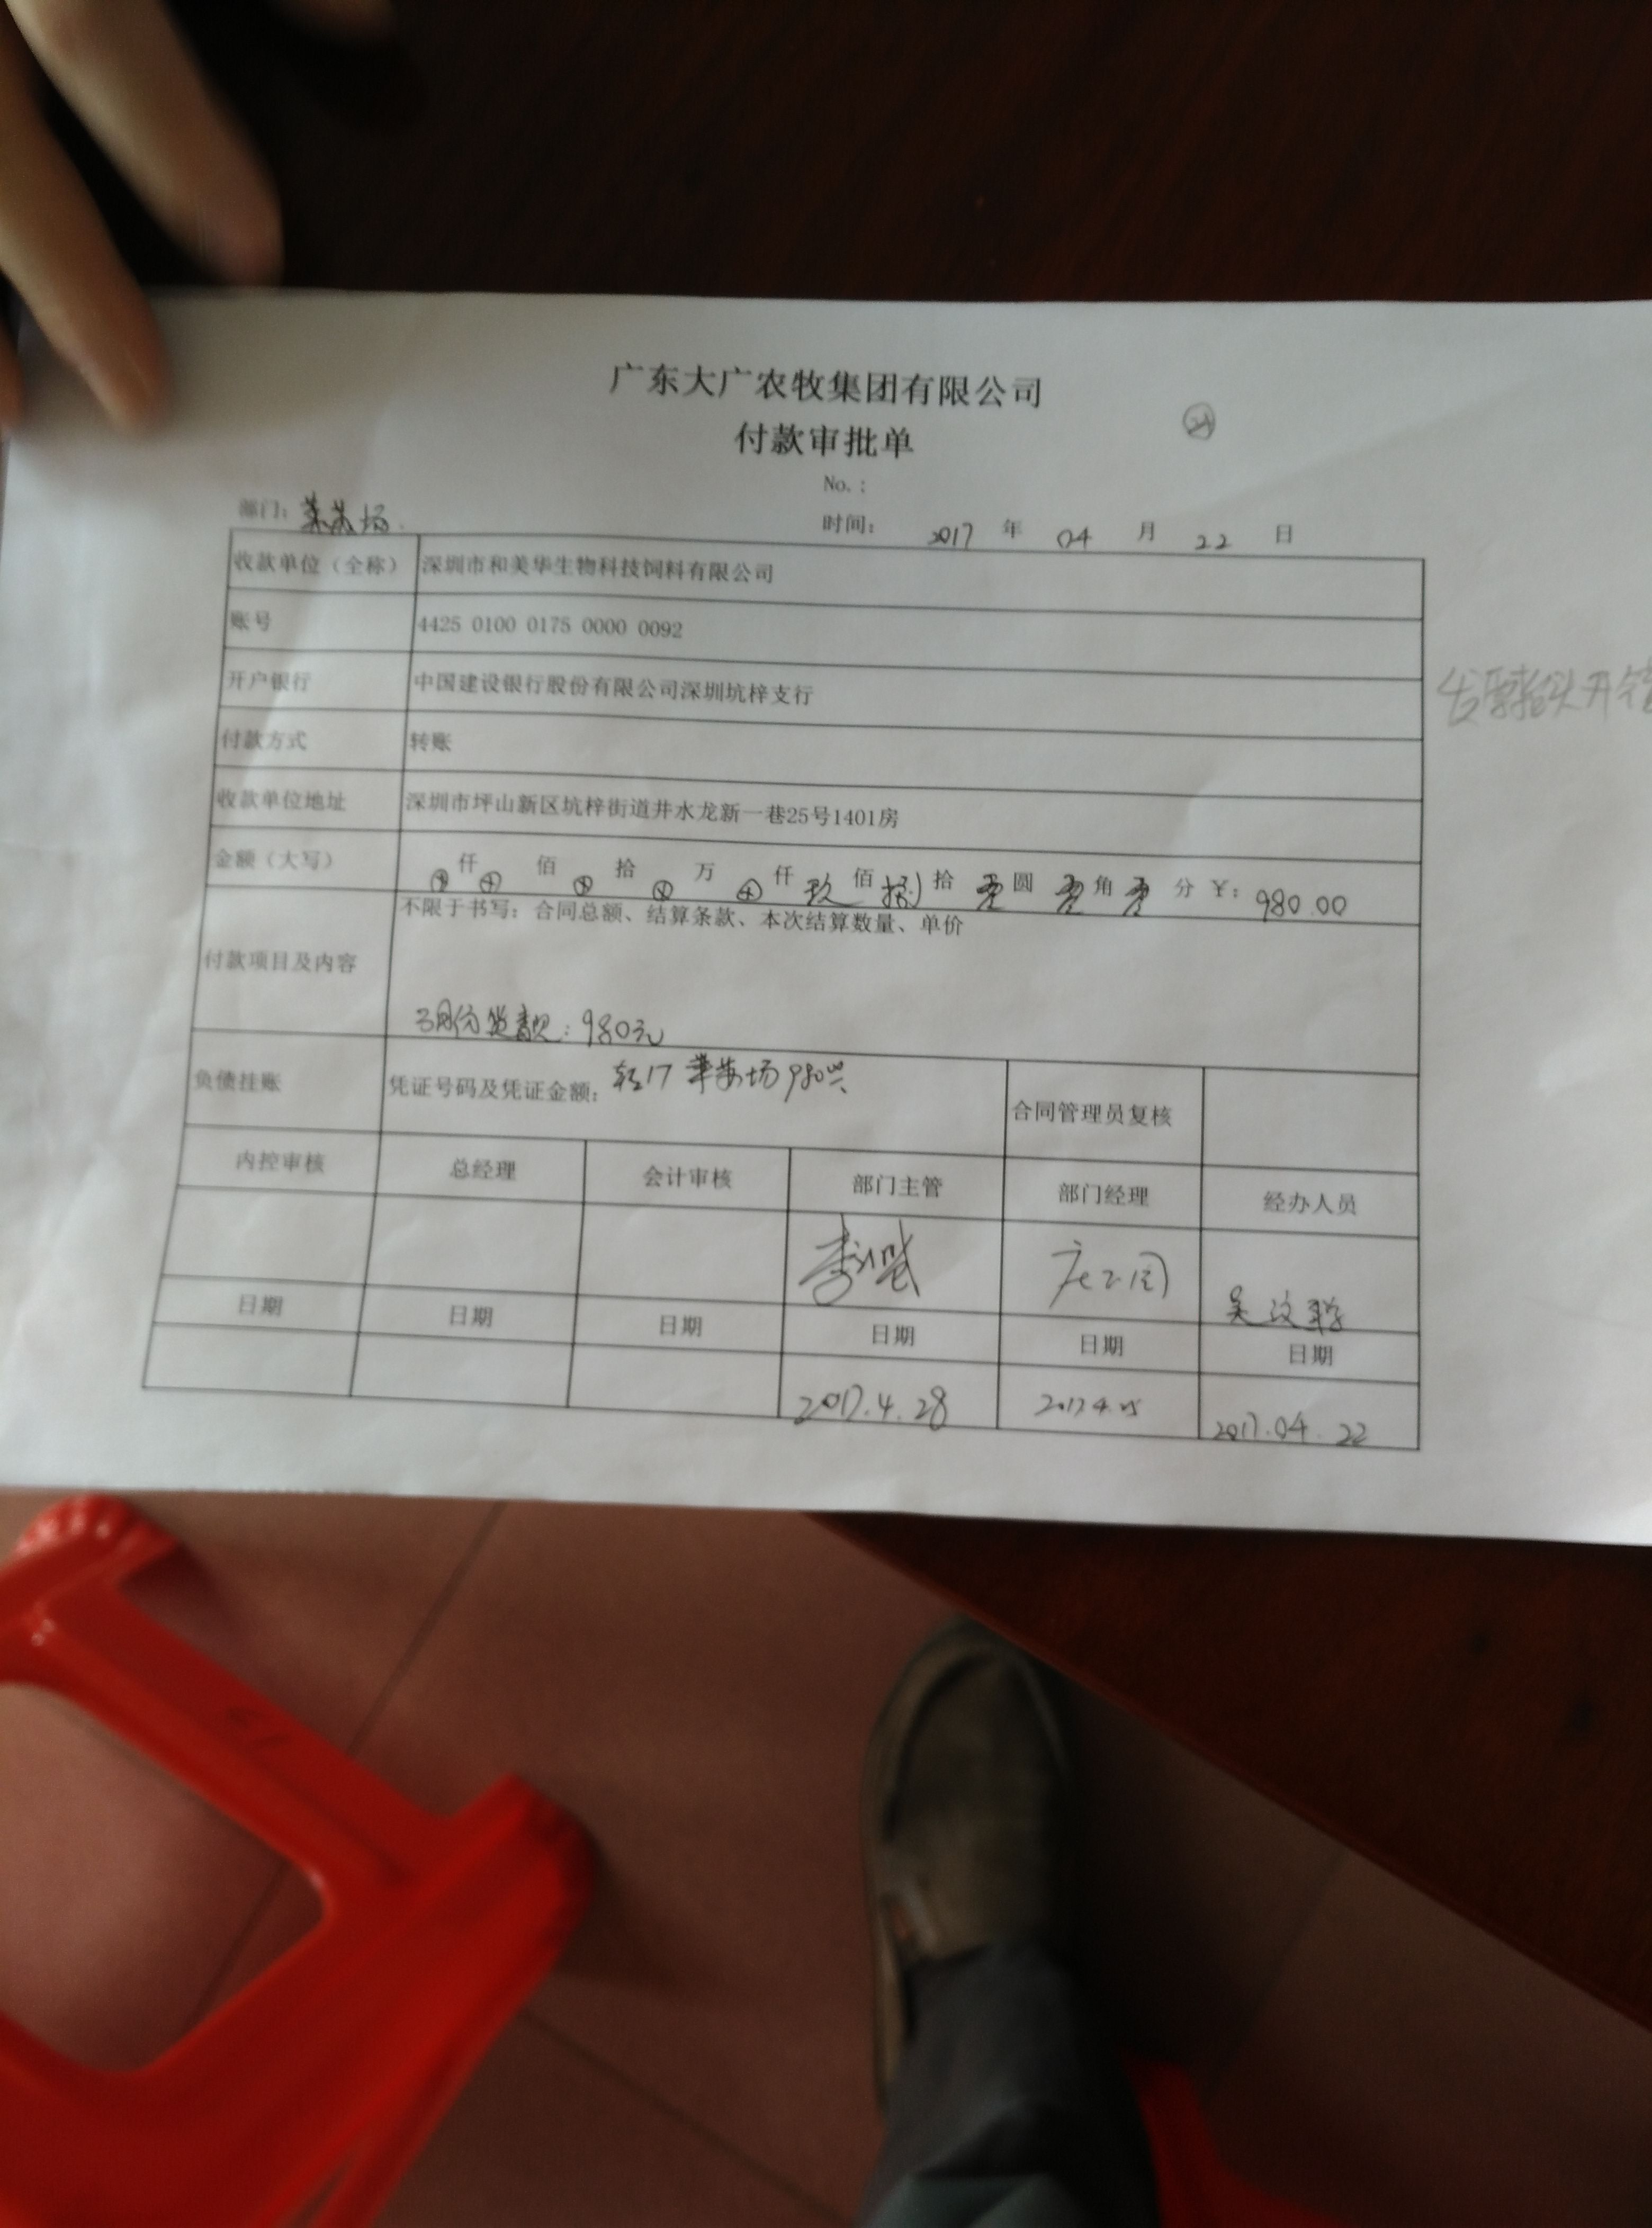 广东大广农牧集团有限公司
付款审批单
No.:
部门: 场
时间: 2017 年 04 月 22 日
收款单位（全称） 深圳市和美华生物科技饲料有限公司
账号 4425 0100 0175 0000 0092
开户银行 中国建设银行股份有限公司深圳坑梓支行
付款方式 转账
收款单位地址 深圳市坪山新区坑梓街道井水龙新一巷25号1401房
金额（大写） ⊗仟⊗佰⊗拾⊗万⊗仟玖佰捌拾零圆零角零分 ¥: 980.00
付款项目及内容 不限于书写：合同总额、结算条款、本次结算数量、单价
3月份货款: 980元
负债挂账 凭证号码及凭证金额: 17 场980 合同管理员复核
内控审核 总经理 会计审核 部门主管 部门经理 经办人员
吴
日期 日期 日期 日期 日期 日期
2017.4.28 2017.4 2017.04.22
发票抬头开